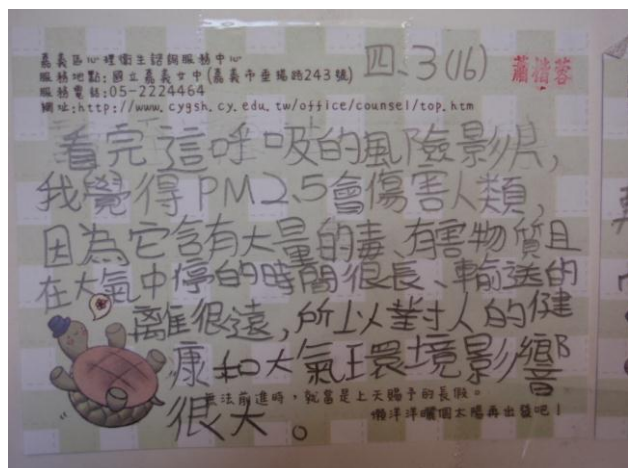 嘉義區心理衛生諮詢服務中心
服務地點:國立嘉義女中(嘉義市垂楊路243號)
服務電話:05-2224464
網址:http://www.cygsh.cy.edu.tw/office/counsel/top.htm
四、3(16)
蕭楷蓉
看完這呼吸的風險影片,
我覺得PM2.5會傷害人類,
因為它含有大量的毒、有害物質且
在大氣中停的時間很長、輸送的
離很遠,所以對人的健
康和大氣環境影響
很大。
無法前進時,就當是上天賜予的長假。
懶洋洋曬個太陽再出發吧!